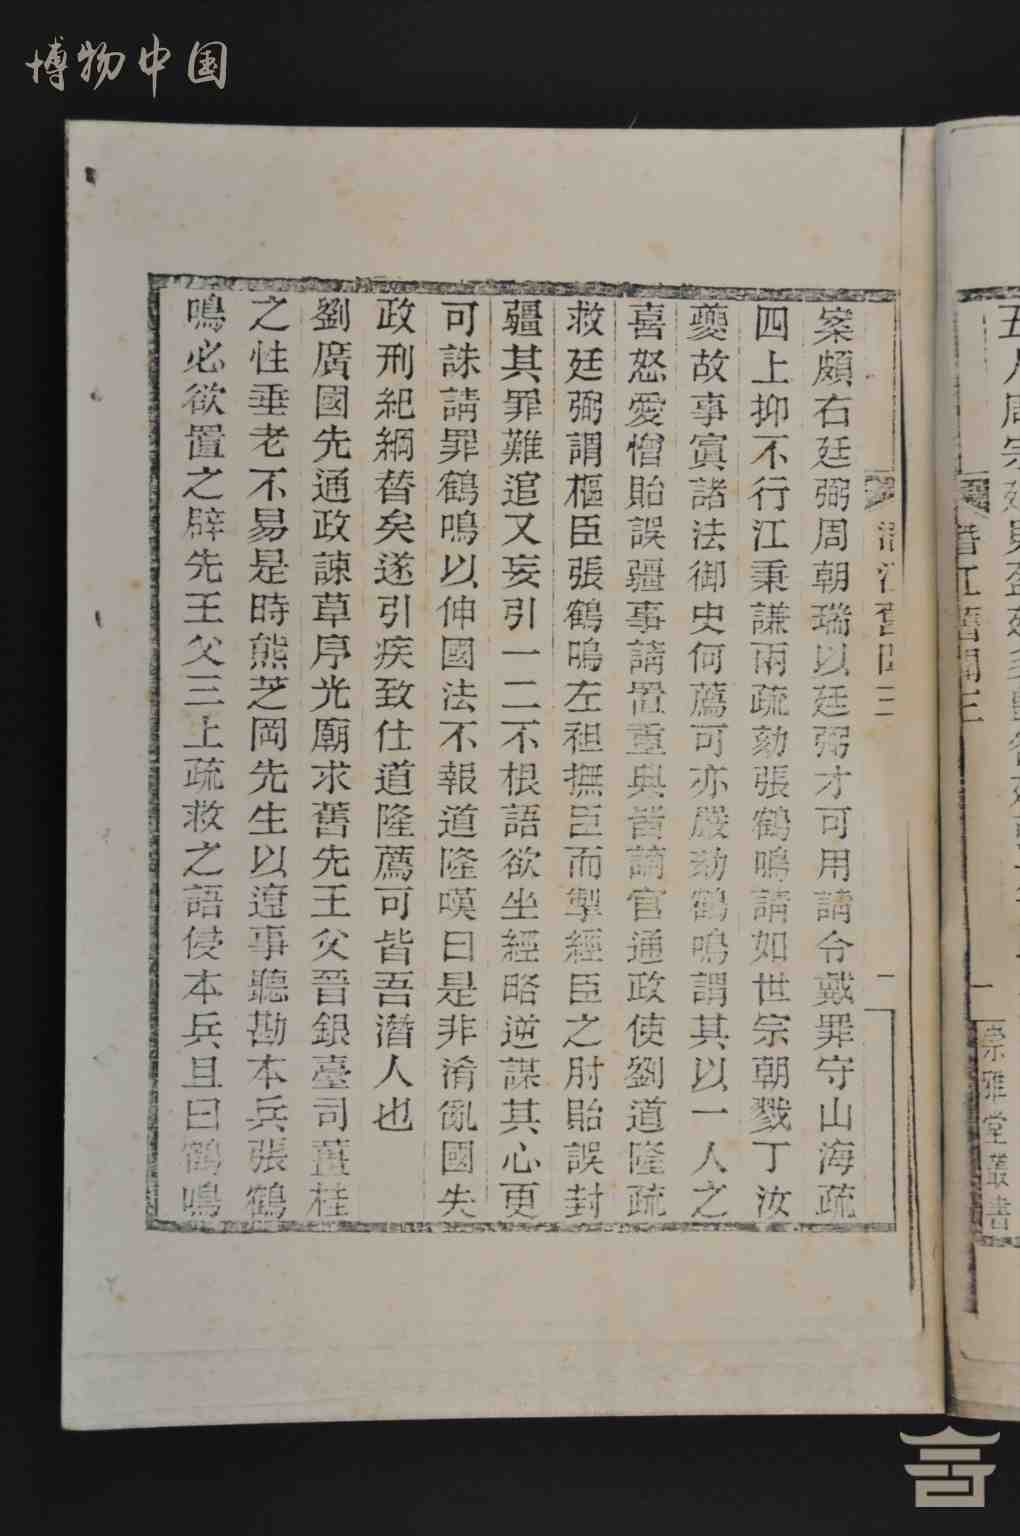 博物中国
案頗右廷弼周朝瑞以廷弼才可用請令戴罪守山海疏
四上抑不行江秉謙兩疏劾張鶴鳴請如世宗朝戮丁汝
夔故事寘諸法御史何薦可亦嚴劾鶴鳴謂其以一人之
喜怒愛憎貽誤疆事請置重典皆謫官通政使劉道隆疏
救廷弼謂樞臣張鶴鳴左袒撫臣而掣經臣之肘貽誤封
疆其罪難逭又妄引一二不根語欲坐經略逆謀其心更
可誅請罪鶴鳴以伸國法不報道隆嘆曰是非淆亂國失
政刑紀綱替矣遂引疾致仕道隆薦可皆吾潛人也
劉廣國先通政諫草序光廟求舊先王父晉銀臺司薑桂
之性垂老不易是時熊芝岡先生以遼事聽勘本兵張鶴
鳴必欲置之辟先王父三上疏救之語侵本兵且曰鶴鳴
潛江舊聞三
一
崇雅堂叢書